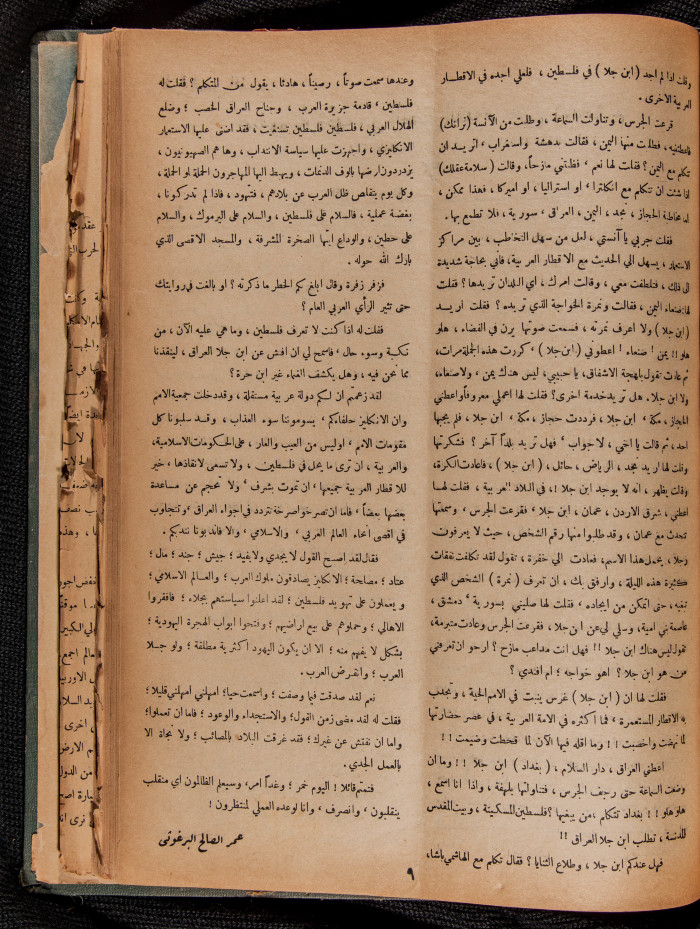 وقلت اذا لم اجد (ابن جلا) في فلسطين ، فلعلي اجده في الاقطار
العربية الاخرى .
قرعت الجرس ، وتناولت السماعة ، وطلت من الآنسة (ترانك)
فاعطتنيه ، فطلبت منها اليمن ، فقالت بدهشة واستغراب ' اتريد ان
تتكلم مع اليمن ؟ فقلت لها نعم ، فظنتني مازحاً ، وقالت (سلامة عقلك)
اذا شئت ان تتكلم مع انكلترا ' او استراليا ، او اميركا ، فهذا ممكن ،
اما مخاطبة الحجاز ، نجد ، اليمن ، العراق ، سورية ، فلا تطمع بها .
فقلت جربي يا آنستي ، لعل من سهل التخاطب ، بين مراكز
الاستعمار ، يسهل الي الحديث مع الاقطار العربية ، فأني بحاجة شديدة
الى ذلك ، فتلطفت معي ، وقالت امرك ، اي البلدان تريدها ؟ فقلت
لها صنعاء اليمن ، فقالت ونمرة الخواجة الذي تريده ؟ فقلت اريد
(ابن جلا) ولا اعرف نمرته ، فسمعت صوتها يرن في الفضاء ، هلو
هلو !! يمن ' صنعاء ! اعطوني (ابن جلا) ' كررت هذه الجملة مرات ،
ثم عادت تقول بلهجة الاشفاق ، يا حبيبي ، ليس هناك يمن ، ولا صنعاء ،
ولا ابن جلا . هل تريد خدمة اخرى ؟ فقلت لها اعملي معروفا واعطني
الحجاز ، مكة ' ابن جلا ، فرددت حجاز ، مكة ' ابن جلا ، فلم يجبها
احد ، ثم قالت يا اخي ، لا جواب ' فهل تريد بلداً آخر ؟ فشكرتها
وقلت لها اريد نجد ، الرياض ، حائل ، (ابن جلا) ، فاعادت الكرة ،
وقالت يظهر ، انه لا يوجد ابن جلا !، في البلاد العربية ، فقلت لها
اعطني ، شرق الاردن ، عمان ، ابن جلا ' فقرعت الجرس ، وسمعتها
تتحدث مع عمان ، وقد طلبوا منها رقم الشخص ، حيث لا يعرفون
رجلا ، يحمل هذا الاسم ، فعادت الي خفرة ، تقول لقد تكلفت نفقات
كثيرة هذه الليلة ، وارفق بك ، ان تعرف (نمرة) الشخص الذي
تبغيه ، حتى اتمكن من ايجاده ، فقلت لها صليني بسورية ' دمشق ،
عاصمة بني امية ، وسلي لي عن ابن جلا ، فقرعت الجرس وعادت متبرمة ،
تقول ليس هناك ابن جلا !! فهل انت مداعب مازح ؟ ارجو ان تعرفني
من هو ابن جلا ؟ اهو خواجه ؛ ام افندي ؟
فقلت لها ان (ابن جلا) غرس ينبت في الامم الحية ، وتجدب
به الاقطار المستعمرة ' فما اكثره في الامة العربية ، في عصر حضارتها
لما نهضت واخصبت !! وما اقله فيها الآن لما قحطت وضيمت !!
اعطني العراق ، دار السلام ، (بغداد) ابن جلا !! وما ان
وضعت السماعة حتى رجف الجرس ، فتناولتها بلهفة ، واذا انا اسمع ،
هلو هلو !! بغداد تتكلم ، من يبغيها ؟ فلسطين المسكينة ، وبيت المقدس
المدنسة ، تطلب ابن جلا العراق !!
فهل عندكم ابن جلا ، وطلاع الثنايا ؟ فقال تكلم مع الهاشمي باشا ،
وعندها سمعت صوتاً ، رصيناً ، هادئا ، يقول من المتكلم ؟ فقلت له
فلسطين ' قادمة جزيرة العرب ، وجناح العراق الخصب ؛ وضلع
الهلال العربي ، فلسطين فلسطين تستغيث ، فقد اضنى عليها الاستعمار
الانكليزي ، واجهزت عليها سياسة الانتداب ، وها هم الصهيونيون ،
يزدردون ارضها بالوف الدنمات ، ويهبط اليها المهاجرون الحملة تلو الحملة ،
وكل يوم يتقلص ظل العرب عن بلادهم ، فتتهود ، فاذا لم تدركونا ،
بغضبة عملية ، فالسلام على فلسطين ، والسلام على اليرموك ، والسلام
على حطين ، والوداع ايتها الصخرة المشرفة ، والمسجد الاقصى الذي
بارك الله حوله .
فزفر زفرة وقال ابلغ بكم الخطر ما ذكرته ؟ او بالغت في روايتك
حتى تثير الرأي العربي العام ؟
فقلت له اذا كنت لا تعرف فلسطين ، وما هي عليه الآن ، من
نكبة وسوء حال ' فاسمح لي ان افتش عن ابن جلا العراق ، لينقذنا
مما نحن فيه ، وهل يكشف الغماء غير ابن حرة ؟
لقد زعمتم ان لكم دولة عربية مستقلة ، وقد دخلت جمعية الامم
وان الانكليز حلفاءكم ' يسوموننا سوء العذاب ، وقد سلبونا كل
مقومات الامم ' اوليس من العيب والعار ، على الحكومات الاسلامية ،
والعربية ، ان ترى ما يحل في فلسطين ، ولا تسعى لانقاذها ، خير
للاقطار العربية جميعها ' ان تموت بشرف ' ولا تحجم عن مساعدة
بعضها بعضاً ' فاما ان تصرخوا صرخة تتردد في اجواء العراق ' وتتجاوب
في اقصى انحاء العالم العربي ، والاسلامي ، والا فاندبونا نندبكم .
فقال لقد اصبح القول لا يجدي ولا يفيد ؛ جيش ؛ جند ؛ مال ؛
عتاد ؛ مصالحة ؛ الانكليز يصادقون ملوك العرب ؛ والعالم الاسلامي ؛
ويعملون على تهويد فلسطين ؛ لقد اعلنوا سياستهم بجلاء ؛ فافقروا
الاهالي ؛ وحملوهم على بيع اراضيهم ؛ وفتحوا ابواب الهجرة اليهودية ؛
بشكل لا يفهم منه ؛ الا ان يكون اليهود اكثرية مطلقة ؛ ولو جلا
العرب ؛ وانقرض العرب .
نعم لقد صدقت فيما وصفت ؛ واسمعت حيا ؛ امهلني امهلني قليلا ؛
فقلت له لقد مضى زمن القول ؛ والاستجداء والوعود ؛ فاما ان تعملوا ؛
واما ان نفتش عن غيرك ؛ فقد غرقت البلاد بالمصائب ؛ ولا نجاة الا
بالعمل الجدي .
فتمتم قائلا ! اليوم خمر ؛ وغداً امر ، وسيعلم الظالمون اي منقلب
ينقلبون ، وانصرف ' وانا لوعده العملي لمنتظرون !
عمر الصالح البرغوثي
٩